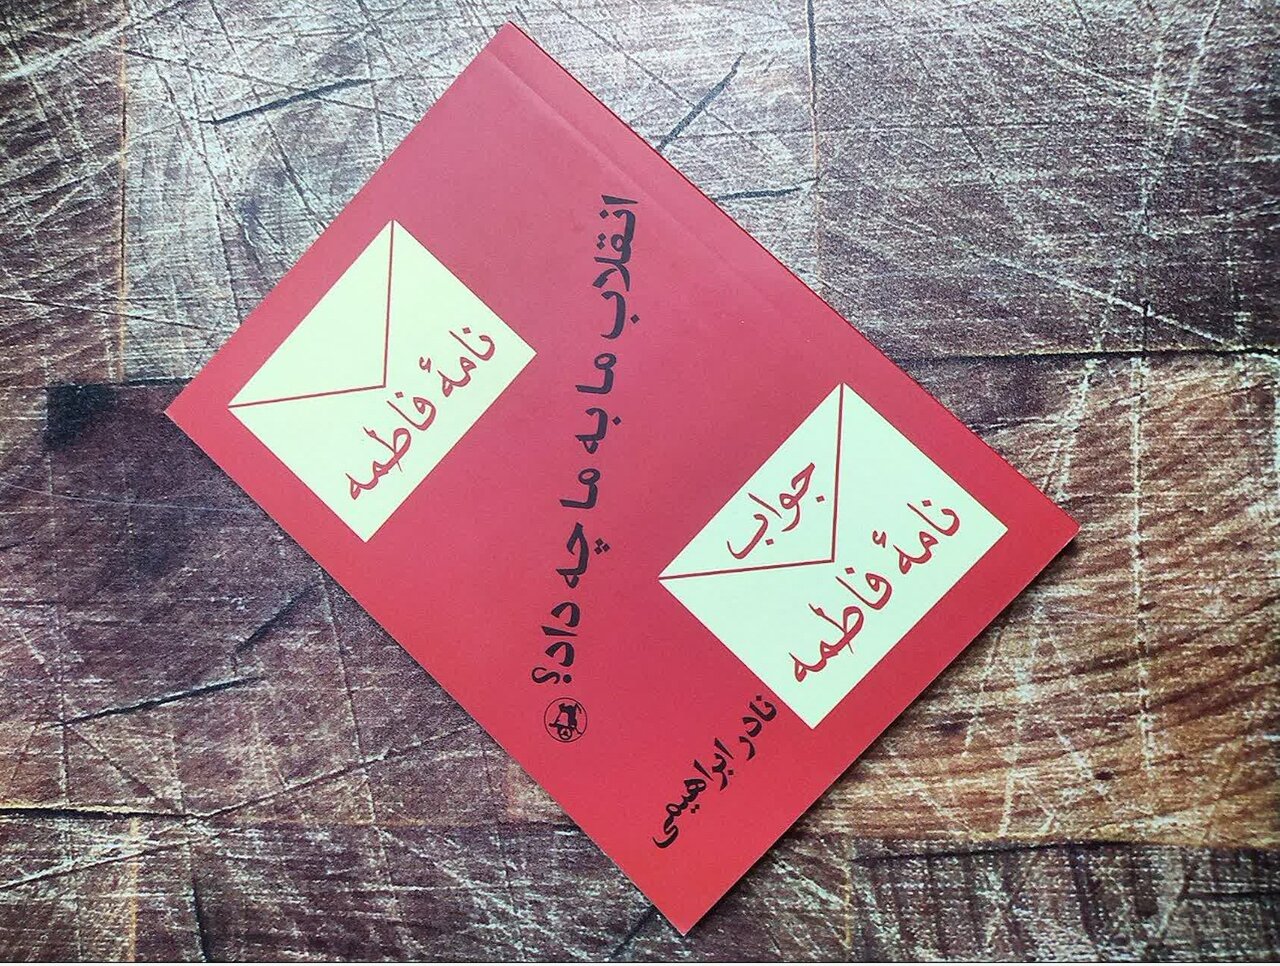 نامۀ فاطمه
انقلاب ما به ما چه داد؟
جواب
نامۀ فاطمه
نادر ابراهیمی